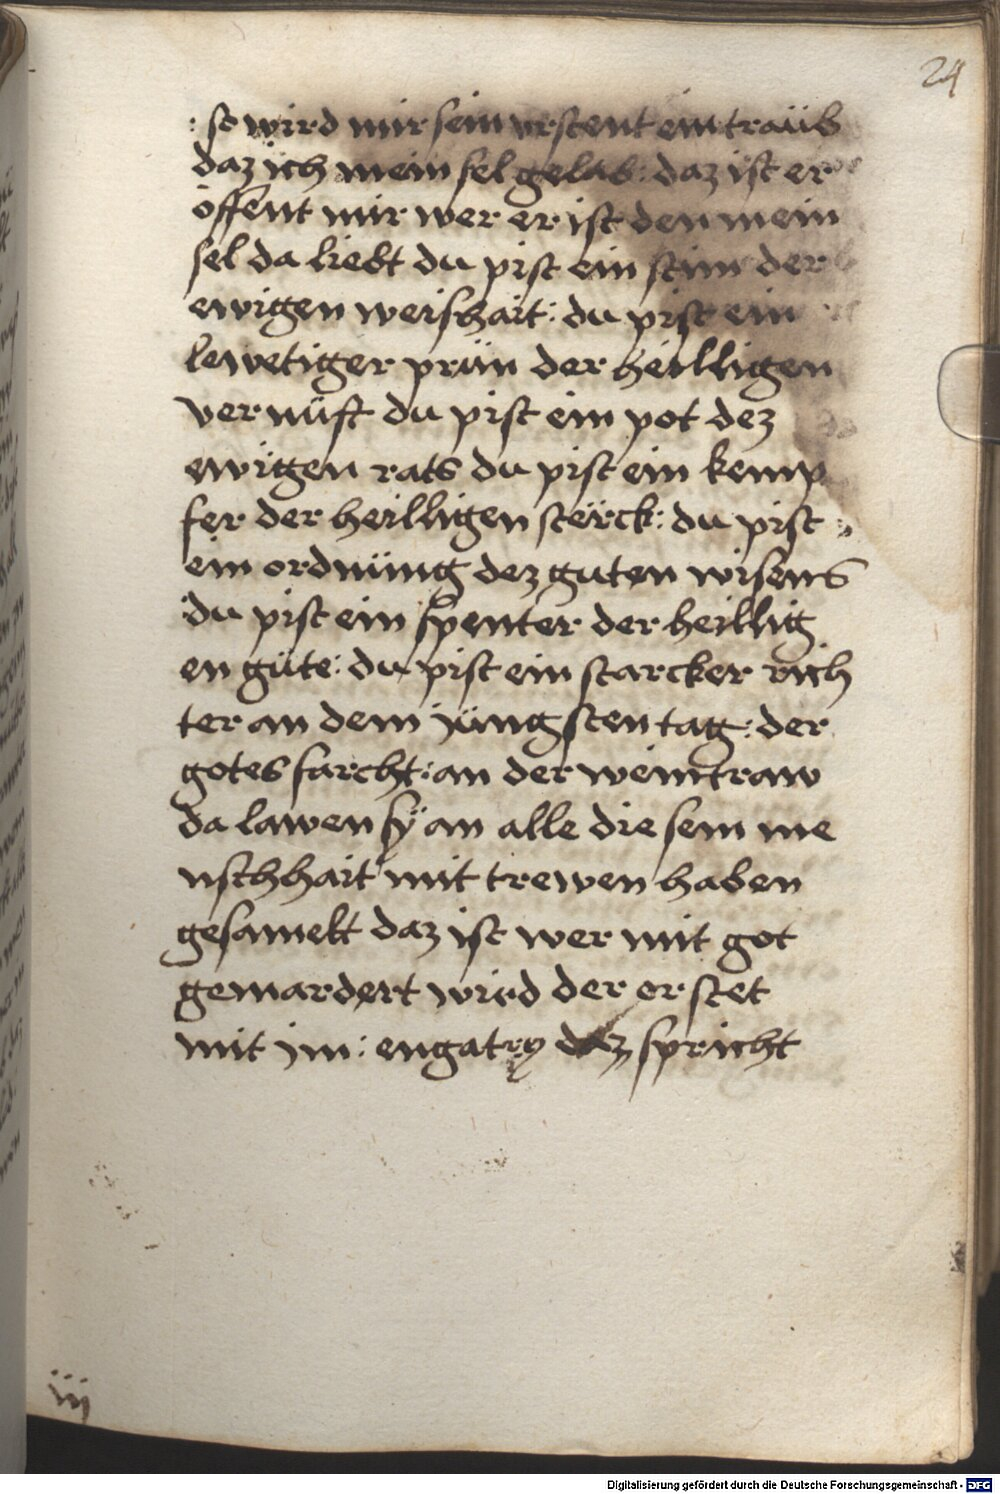 24
: so wird mir sein urstent ein traüb
daz ich mein sel gelab : daz ist er
öffent mir wer er ist den mein
sel da liebt du pist ein stim der
ewigen weishait : du pist ein
lewetiger prün der heilligen
vernüft du pist ein pot dez
ewigen rats du pist ein kemp
fer der heilligen sterck : du pist
ein ordnüng dez guten wisens
du pist ein spenter der heillig
en güte : du pist ein starcker rich
ter an dem jüngsten tag : der
gotes farcht : an der weintraw
da lawen sy an alle die sein me
nschhait mit trewen haben
gesamelt daz ist wer mit got
gemardert wird der erstet
mit jm : engatry daz spricht
iij
Digitalisierung gefördert durch die Deutsche Forschungsgemeinschaft - DFG